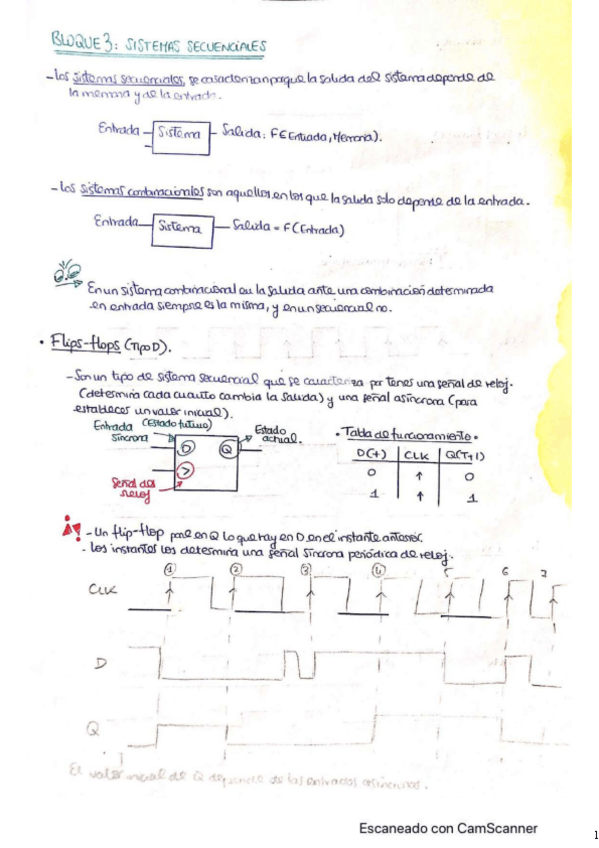 BLOQUE 3: SISTEMAS SECUENCIALES
- Los sistemas secuenciales, se caracterizan porque la salida del sistema depende de
la memoria y de la entrada.
Entrada Sistema Salida: F(Entrada, Memoria).
- Los sistemas combinacionales son aquellos en los que la salida solo depende de la entrada.
Entrada Sistema Salida = F(Entrada)
En un sistema combinacional la salida ante una combinación determinada
en entrada siempre es la misma, y en un secuencial no.
• Flips-flops (Tipo D).
- Son un tipo de sistema secuencial que se caracteriza por tener una señal de reloj.
(determina cada cuanto cambia la salida) y una señal asíncrona (para
establecer un valor inicial).
Entrada (Estado futuro)
síncrona
D Q
Estado
actual.
Señal del
reloj
• Tabla de funcionamiento •
D(t) CLK Q(T+1)
0 ↑ 0
1 ↑ 1
- Un flip-flop pone en Q lo que hay en D en el instante anterior.
- Los instantes los determina una señal síncrona periódica de reloj.
1 2 3 4 5 6 7
CLK
D
Q
El valor inicial de Q depende de las entradas asíncronas.
Escaneado con CamScanner
1